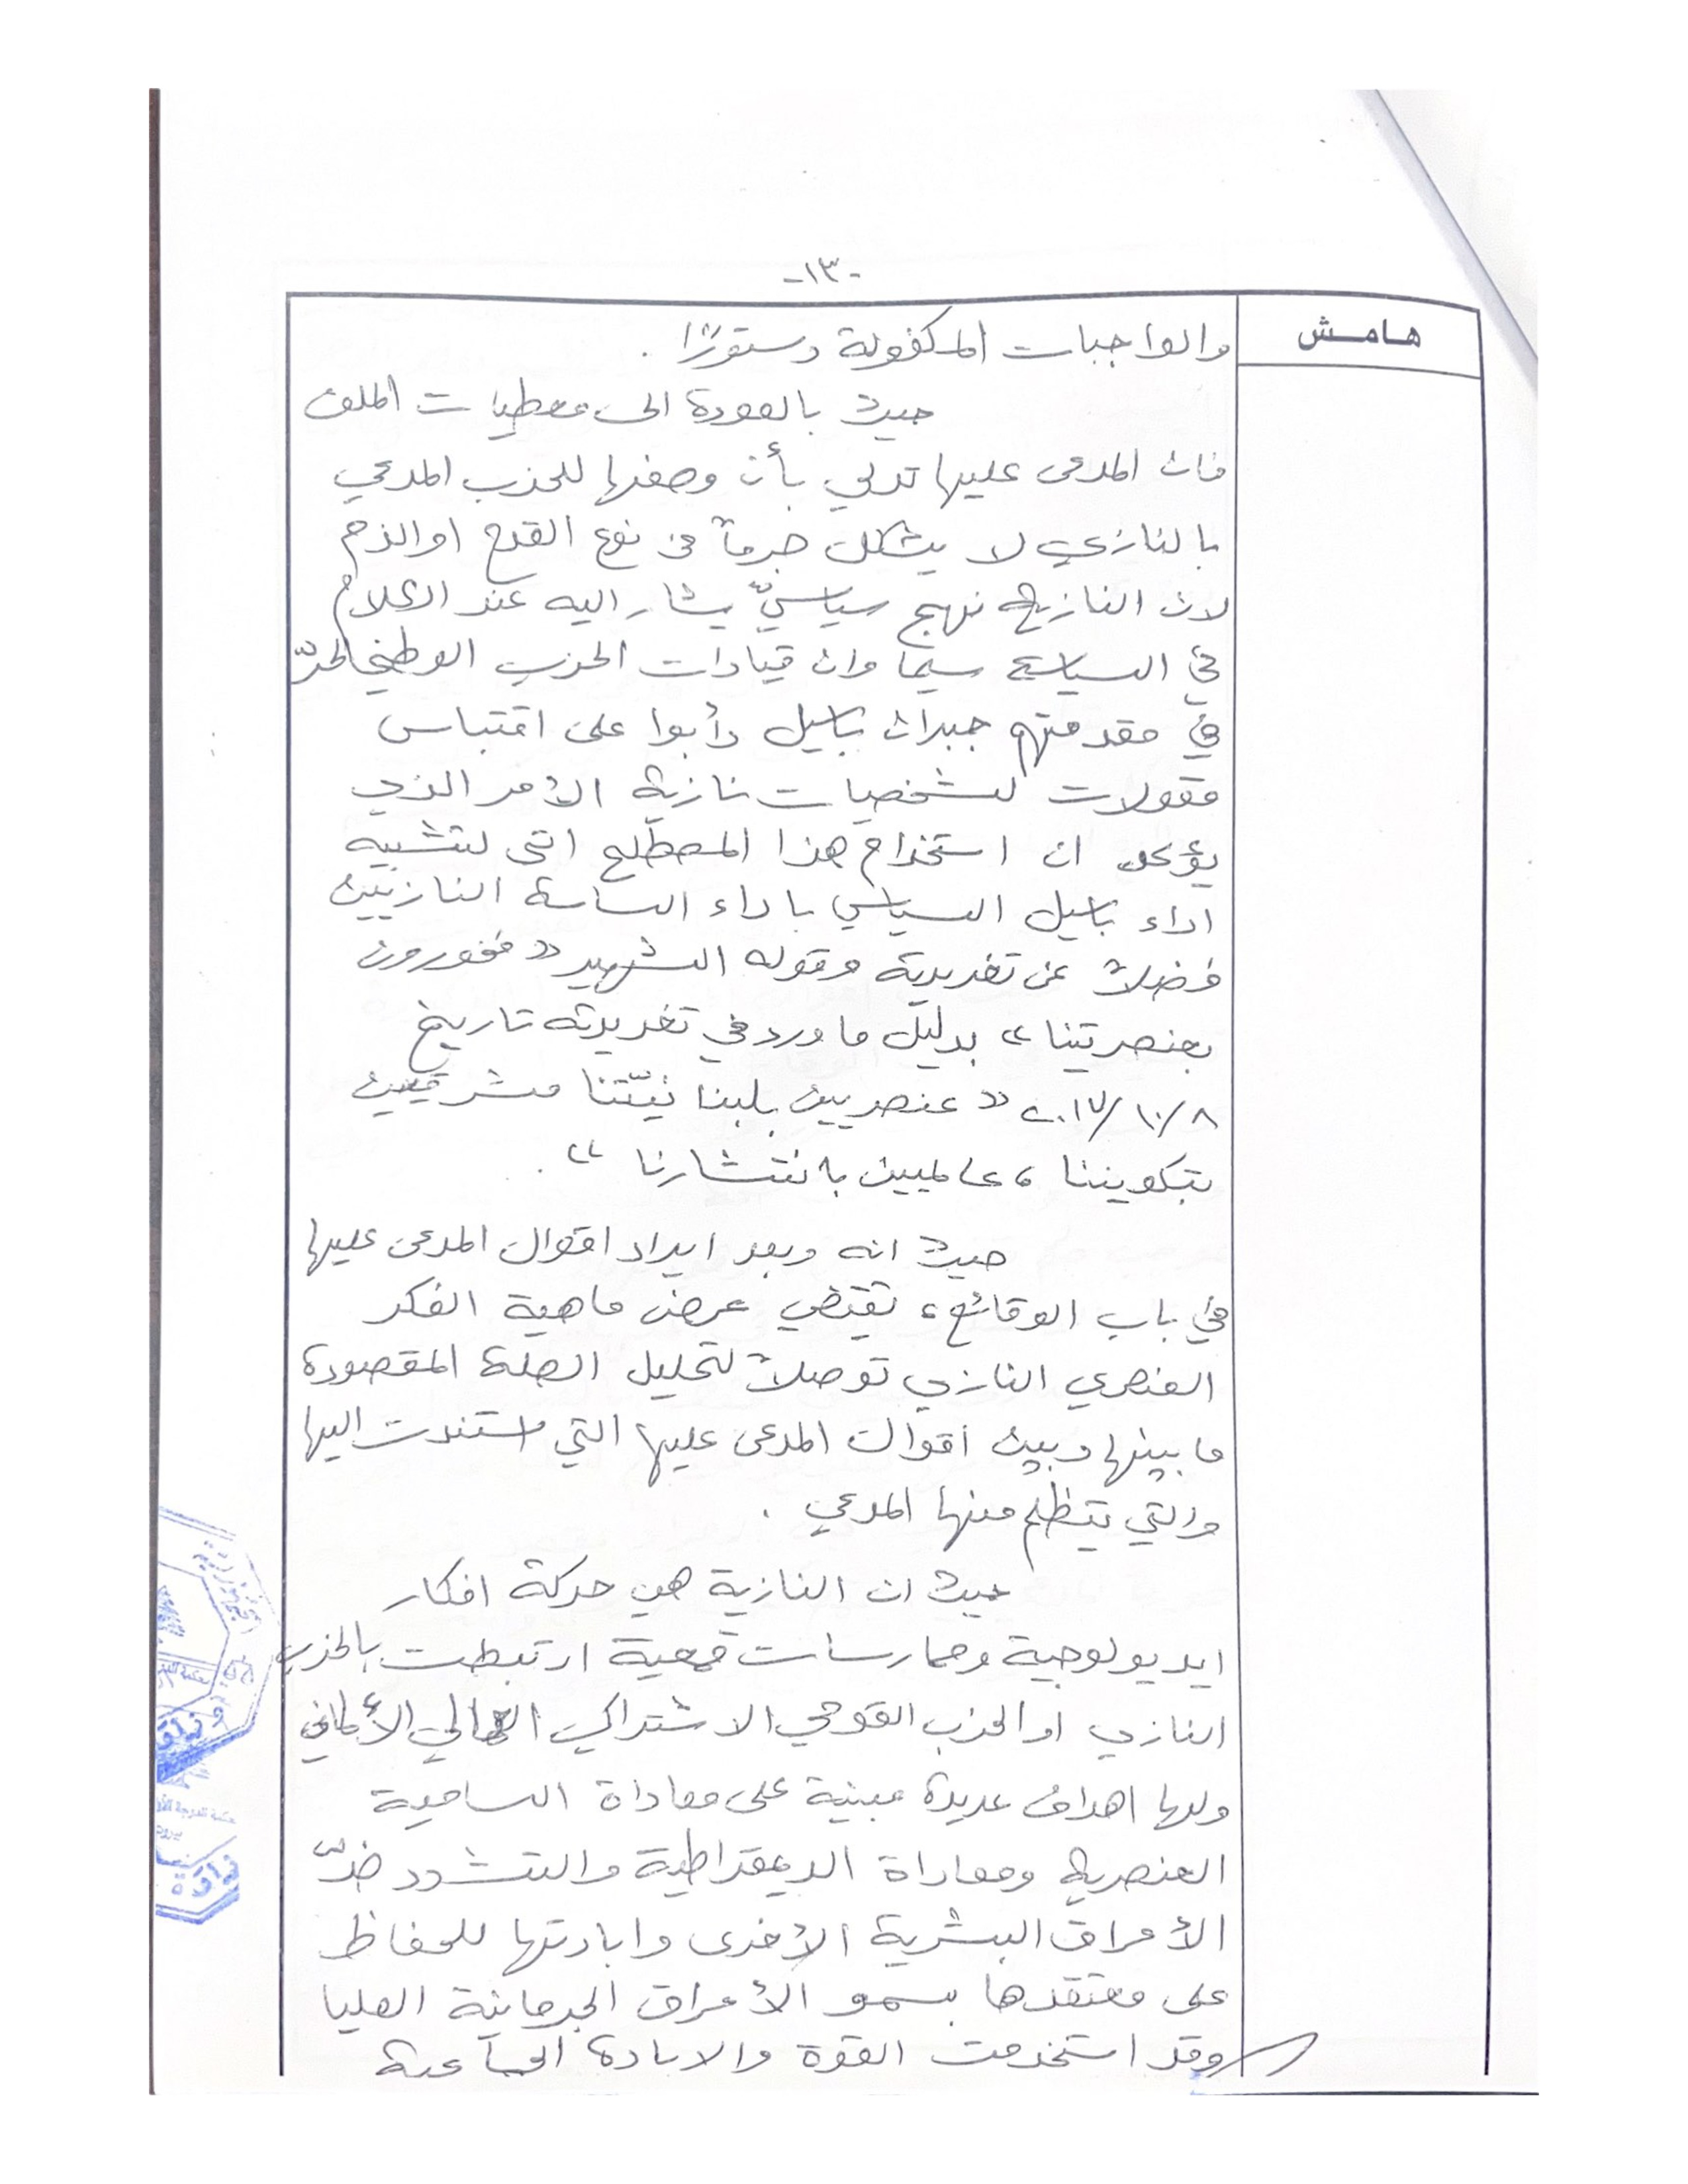 -١٣-
هامش
والواجبات المكفولة دستورًا .
حيث بالعودة الى معطيات الملف
فان المدعى عليها تدلي بأن وصفها للحزب المدعي
بالنازي لا يشكل جرماً من نوع القدح او الذم
لان النازية نهج سياسيّ يشار اليه عند الكلام
في السياسة سيما وان قيادات الحزب الوطني الحرّ
في مقدمتهم جبران باسيل دأبوا على اقتباس
مقولات لشخصيات نازية الأمر الذي
يؤكد ان استخدام هذا المصطلح اتى لتشبيه
اداء باسيل السياسي باداء الساسة النازيين
فضلاً عن تغريدية وقوله الشهير « فخورون
بعنصريتنا » بدليل ما ورد في تغريدته تاريخ
٨/١٠/٢٠١٧ « عنصريين بلبنانيّتنا مشرقيين
بتكويننا ، عالميين بانتشارنا » .
حيث انه وبعد ايراد اقوال المدعى عليها
في باب الوقائع، تقتضي عرض ماهية الفكر
العنصري النازي توصلاً لتحليل الصلة المقصودة
ما بينها وبين اقوال المدعى عليها التي استندت اليها
والتي يتظلم منها المدعي .
حيث ان النازية هي حركة افكار
ايديولوجية وممارسات قمعية ارتبطت بالحزب
النازي او الحزب القومي الاشتراكي العمالي الألماني
ولها اهداف عديدة مبنية على معاداة السامية
العنصرية ومعاداة الديمقراطية والتشدد ضدّ
الأعراق البشرية الأخرى وابادتها للحفاظ
على معتقدها بسمو الأعراق الجرمانية العليا
وقد استخدمت القوة والابادة الجماعية